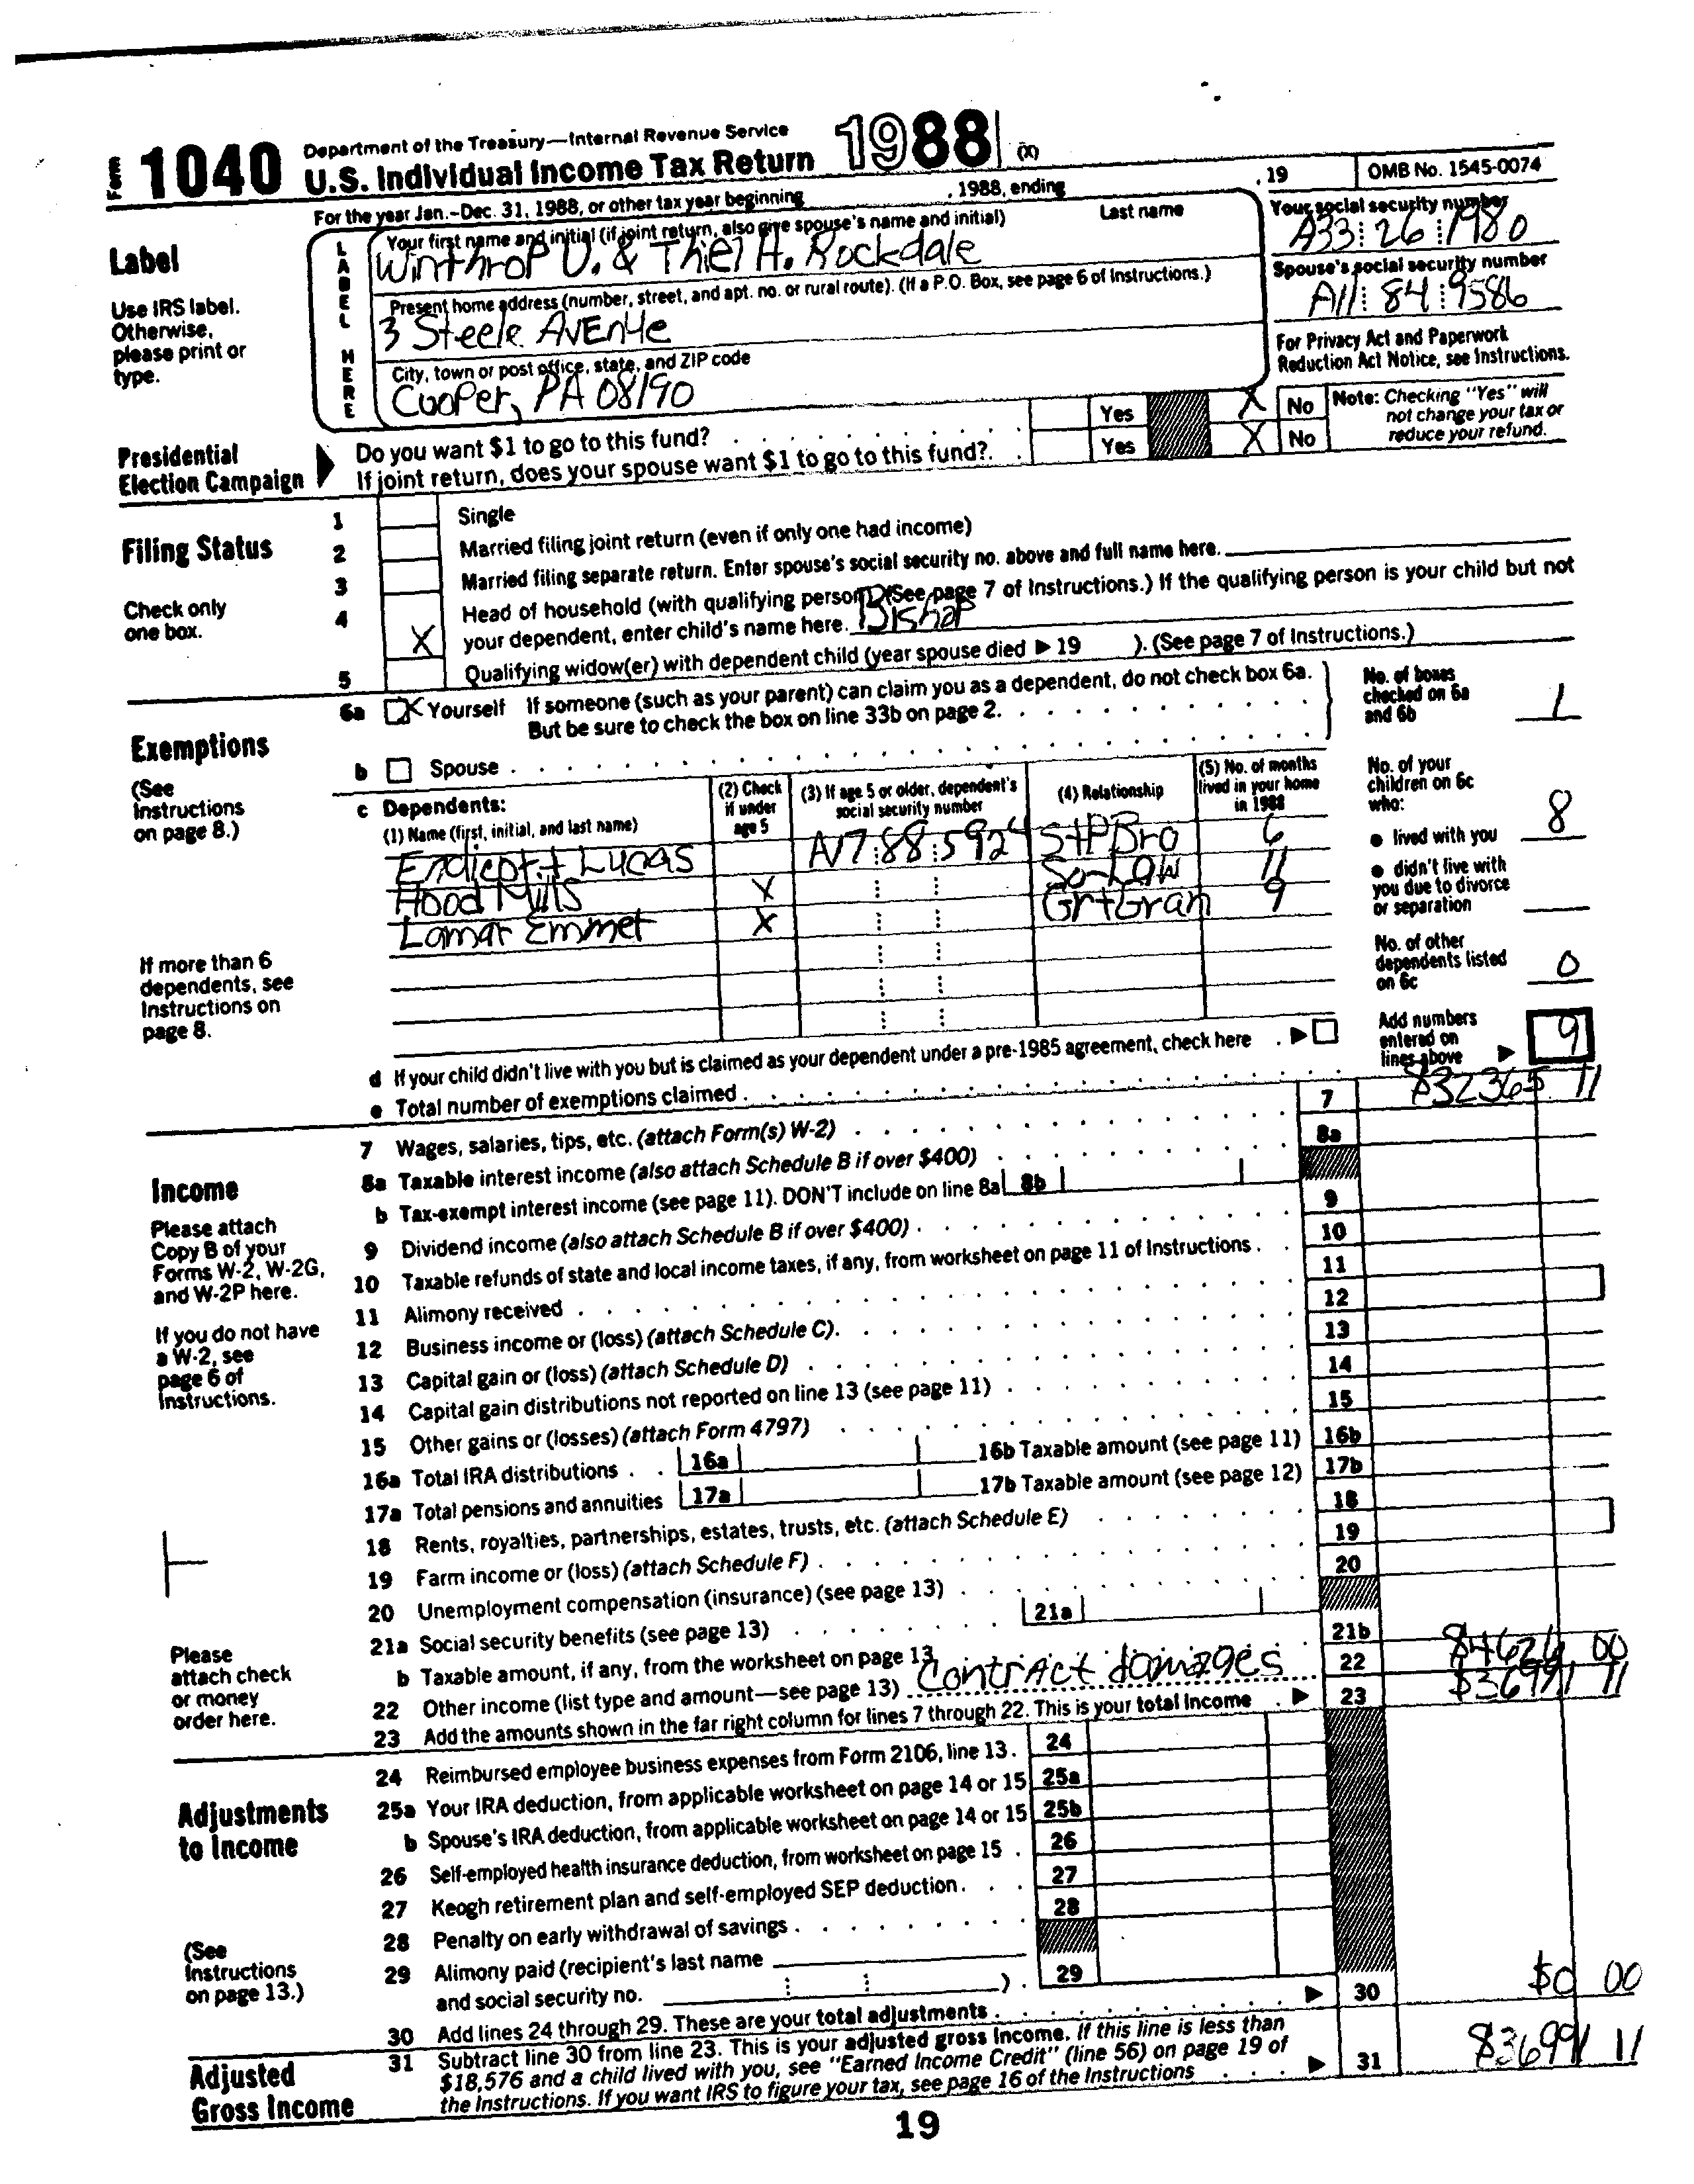 Form 1040 Department of the Treasury—Internal Revenue Service
U.S. Individual Income Tax Return 1988 (X)
For the year Jan.-Dec. 31, 1988, or other tax year beginning , 1988, ending , 19 OMB No. 1545-0074
Label
Use IRS label.
Otherwise,
please print or
type.
LABEL HERE
Your first name and initial (if joint return, also give spouse's name and initial) Last name
Winthrop U. & Thiel H. Rockdale
Your social security number
A33 26 1980
Present home address (number, street, and apt. no. or rural route). (If a P.O. Box, see page 6 of Instructions.)
3 Steele AvEnue
Spouse's social security number
A11 84 9586
City, town or post office, state, and ZIP code
Cooper, PA 08190
For Privacy Act and Paperwork
Reduction Act Notice, see Instructions.
Presidential
Election Campaign
Do you want $1 to go to this fund? Yes X No
If joint return, does your spouse want $1 to go to this fund? Yes X No
Note: Checking "Yes" will
not change your tax or
reduce your refund.
Filing Status
Check only
one box.
1 Single
2 Married filing joint return (even if only one had income)
3 Married filing separate return. Enter spouse's social security no. above and full name here.
4 Head of household (with qualifying person). (See page 7 of Instructions.) If the qualifying person is your child but not
X your dependent, enter child's name here. Bishop
5 Qualifying widow(er) with dependent child (year spouse died ▶ 19 ). (See page 7 of Instructions.)
Exemptions
(See
Instructions
on page 8.)
If more than 6
dependents, see
Instructions on
page 8.
6a X Yourself If someone (such as your parent) can claim you as a dependent, do not check box 6a.
But be sure to check the box on line 33b on page 2.
No. of boxes
checked on 6a
and 6b 1
b Spouse
c Dependents:
(1) Name (first, initial, and last name)
(2) Check
if under
age 5
(3) If age 5 or older, dependent's
social security number
(4) Relationship
(5) No. of months
lived in your home
in 1988
Endicott Lucas A17 88 5924 StPBro 6
Hood Mills X So-LAW 11
Lamar Emmet X GrtGran 9
No. of your
children on 6c
who:
● lived with you 8
● didn't live with
you due to divorce
or separation
No. of other
dependents listed
on 6c 0
d If your child didn't live with you but is claimed as your dependent under a pre-1985 agreement, check here
e Total number of exemptions claimed
Add numbers
entered on
lines above ▶ 9
Income
Please attach
Copy B of your
Forms W-2, W-2G,
and W-2P here.
If you do not have
a W-2, see
page 6 of
Instructions.
Please
attach check
or money
order here.
7 Wages, salaries, tips, etc. (attach Form(s) W-2) 7 $32365 11
8a Taxable interest income (also attach Schedule B if over $400) 8a
b Tax-exempt interest income (see page 11). DON'T include on line 8a 8b
9 Dividend income (also attach Schedule B if over $400) 9
10 Taxable refunds of state and local income taxes, if any, from worksheet on page 11 of Instructions 10
11 Alimony received 11
12 Business income or (loss) (attach Schedule C) 12
13 Capital gain or (loss) (attach Schedule D) 13
14 Capital gain distributions not reported on line 13 (see page 11) 14
15 Other gains or (losses) (attach Form 4797) 15
16a Total IRA distributions 16a 16b Taxable amount (see page 11) 16b
17a Total pensions and annuities 17a 17b Taxable amount (see page 12) 17b
18 Rents, royalties, partnerships, estates, trusts, etc. (attach Schedule E) 18
19 Farm income or (loss) (attach Schedule F) 19
20 Unemployment compensation (insurance) (see page 13) 20
21a Social security benefits (see page 13) 21a
b Taxable amount, if any, from the worksheet on page 13 21b
22 Other income (list type and amount—see page 13) Contract damages 22 $4626 00
23 Add the amounts shown in the far right column for lines 7 through 22. This is your total income ▶ 23 $36991 11
Adjustments
to Income
(See
Instructions
on page 13.)
24 Reimbursed employee business expenses from Form 2106, line 13 24
25a Your IRA deduction, from applicable worksheet on page 14 or 15 25a
b Spouse's IRA deduction, from applicable worksheet on page 14 or 15 25b
26 Self-employed health insurance deduction, from worksheet on page 15 26
27 Keogh retirement plan and self-employed SEP deduction 27
28 Penalty on early withdrawal of savings 28
29 Alimony paid (recipient's last name
and social security no. ) 29
30 Add lines 24 through 29. These are your total adjustments ▶ 30 $0 00
Adjusted
Gross Income
31 Subtract line 30 from line 23. This is your adjusted gross income. If this line is less than
$18,576 and a child lived with you, see "Earned Income Credit" (line 56) on page 19 of
the Instructions. If you want IRS to figure your tax, see page 16 of the Instructions ▶ 31 $36991 11
19